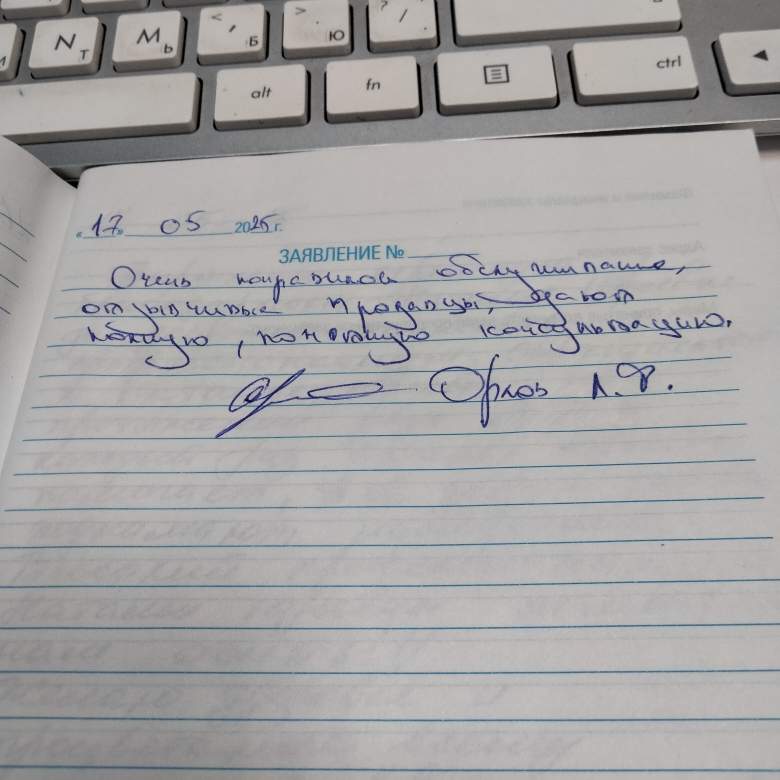 N Т M Ь < , Б > . Ю ? /
alt fn ctrl
«17» 05 2025г.
ЗАЯВЛЕНИЕ №
Очень понравилось обслуживание,
отзывчивые продавцы, дают
полную, понятную консультацию.
Орлов А.Ф.